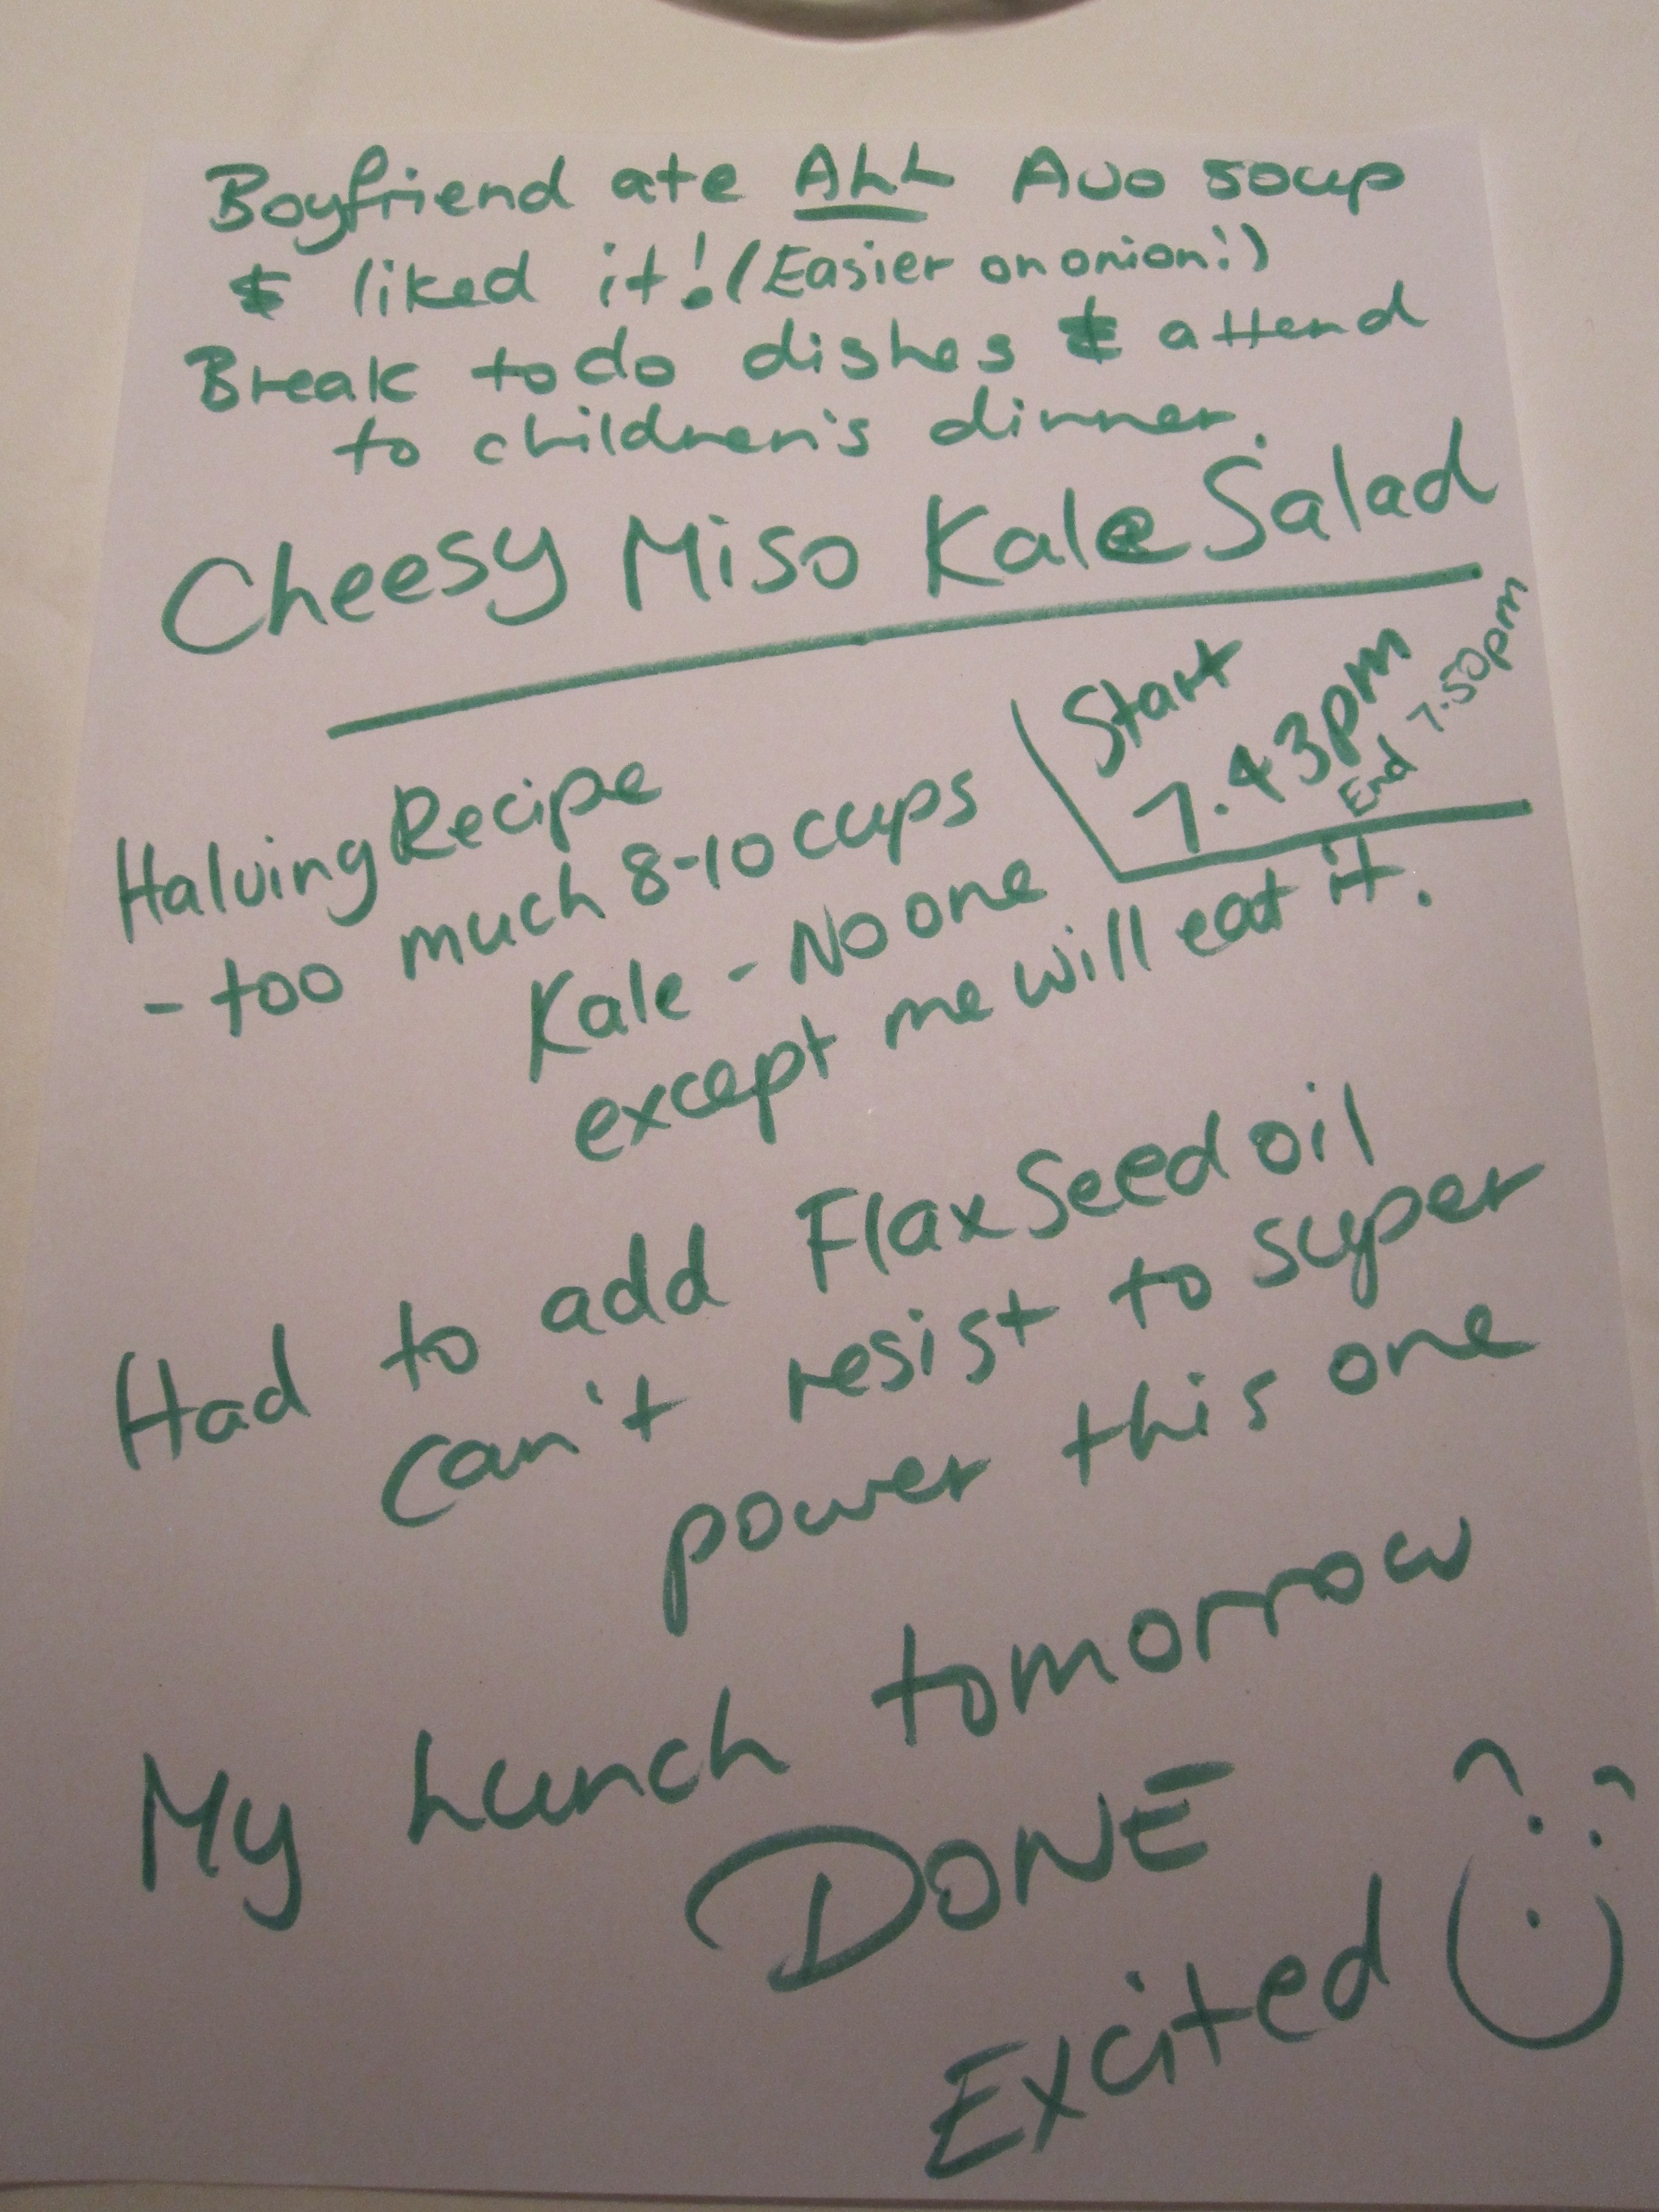 Boyfriend ate ALL Avo soup
& liked it! (Easier on onion!)
Break to do dishes & attend
to children's dinner.
Cheesy Miso Kale Salad
Start
7.43pm
End 7.50pm
Halving Recipe
- too much 8-10 cups
Kale - No one
except me will eat it.
Had to add Flax Seed oil
can't resist to super
power this one
My Lunch tomorrow
DONE
Excited